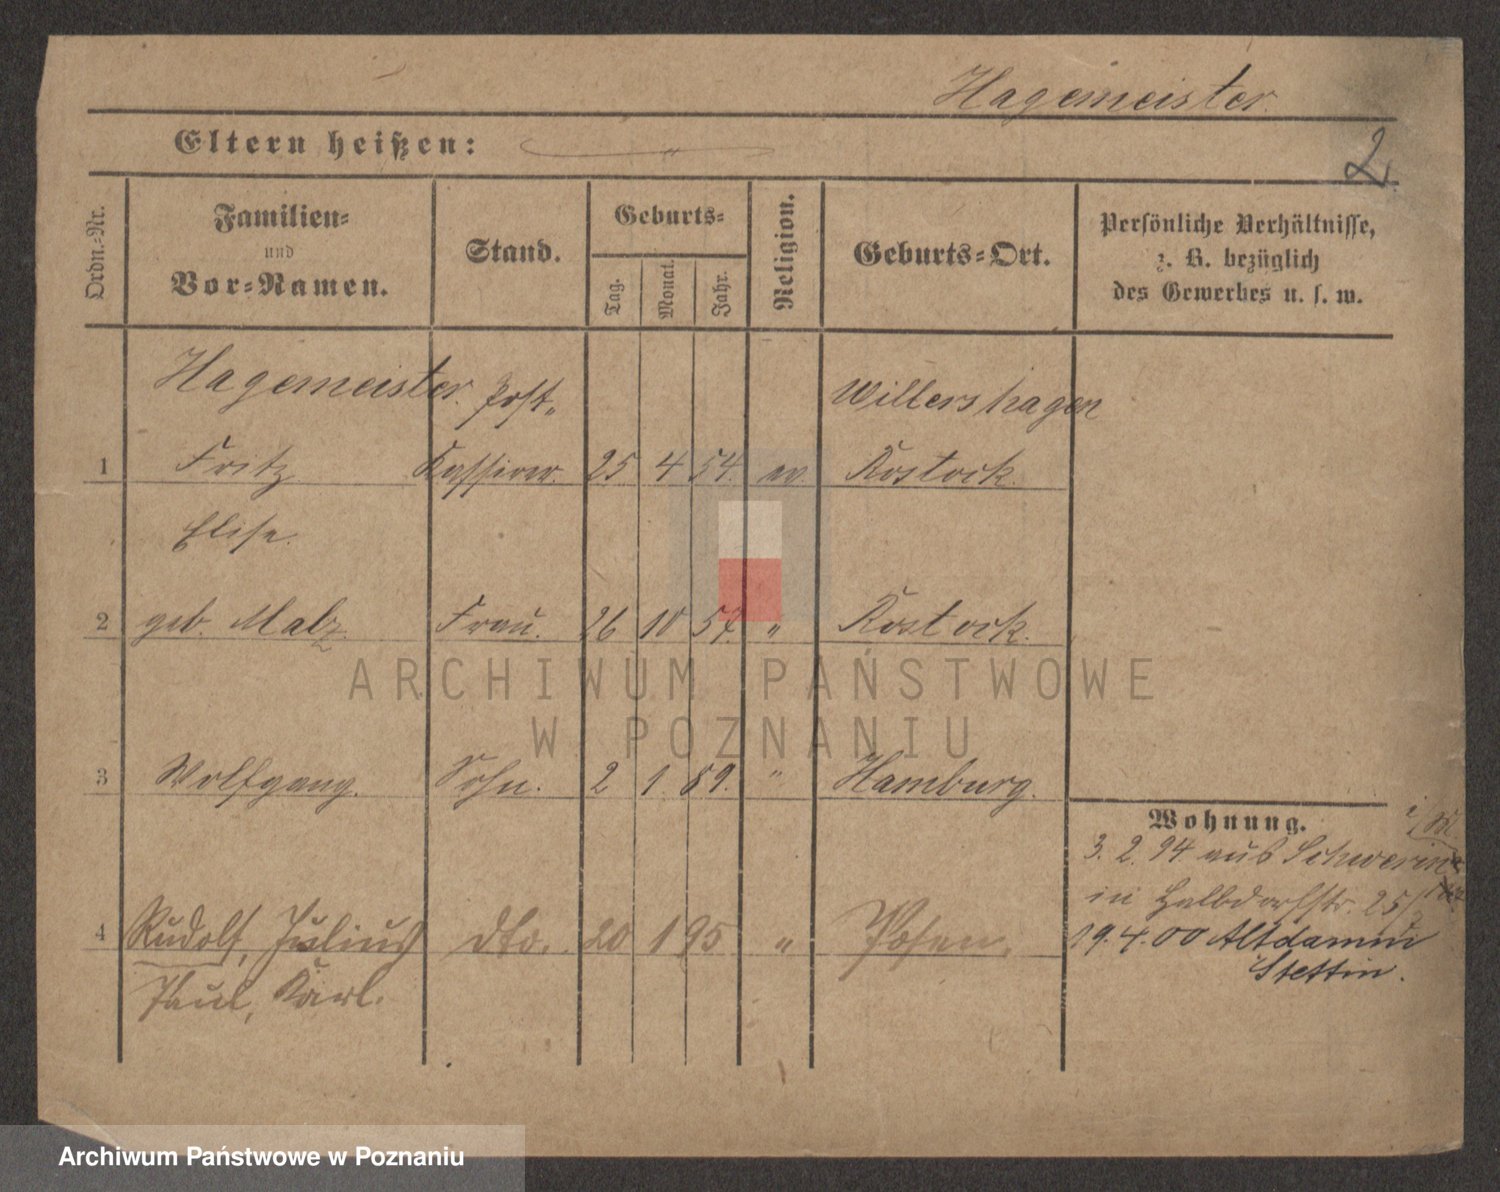 Hagemeister.
Eltern heißen:
2.
Ordn.-Nr.
Familien-
und
Vor-Namen.
Stand.
Geburts-
Tag.
Monat.
Jahr.
Religion.
Geburts-Ort.
Persönliche Verhältnisse,
z. B. bezüglich
des Gewerbes u. s. w.
Hagemeister. Post- Willershagen
1 Fritz Kassirer. 25 4 54. ev. Rostock.
Elise.
2 geb. Malz Frau. 26 10 57. " Rostock.
ARCHIWUM PAŃSTWOWE
W POZNANIU
3 Wolfgang. Sohn. 2 1. 89. " Hamburg.
Wohnung.
3. 2. 94 aus Schwerin
in Halbdorfstr. 25
4 Rudolf, Julius dto. 20 1 95 " Posen.
19.4.00 Altdamm
Stettin.
Paul, Karl.
Archiwum Państwowe w Poznaniu